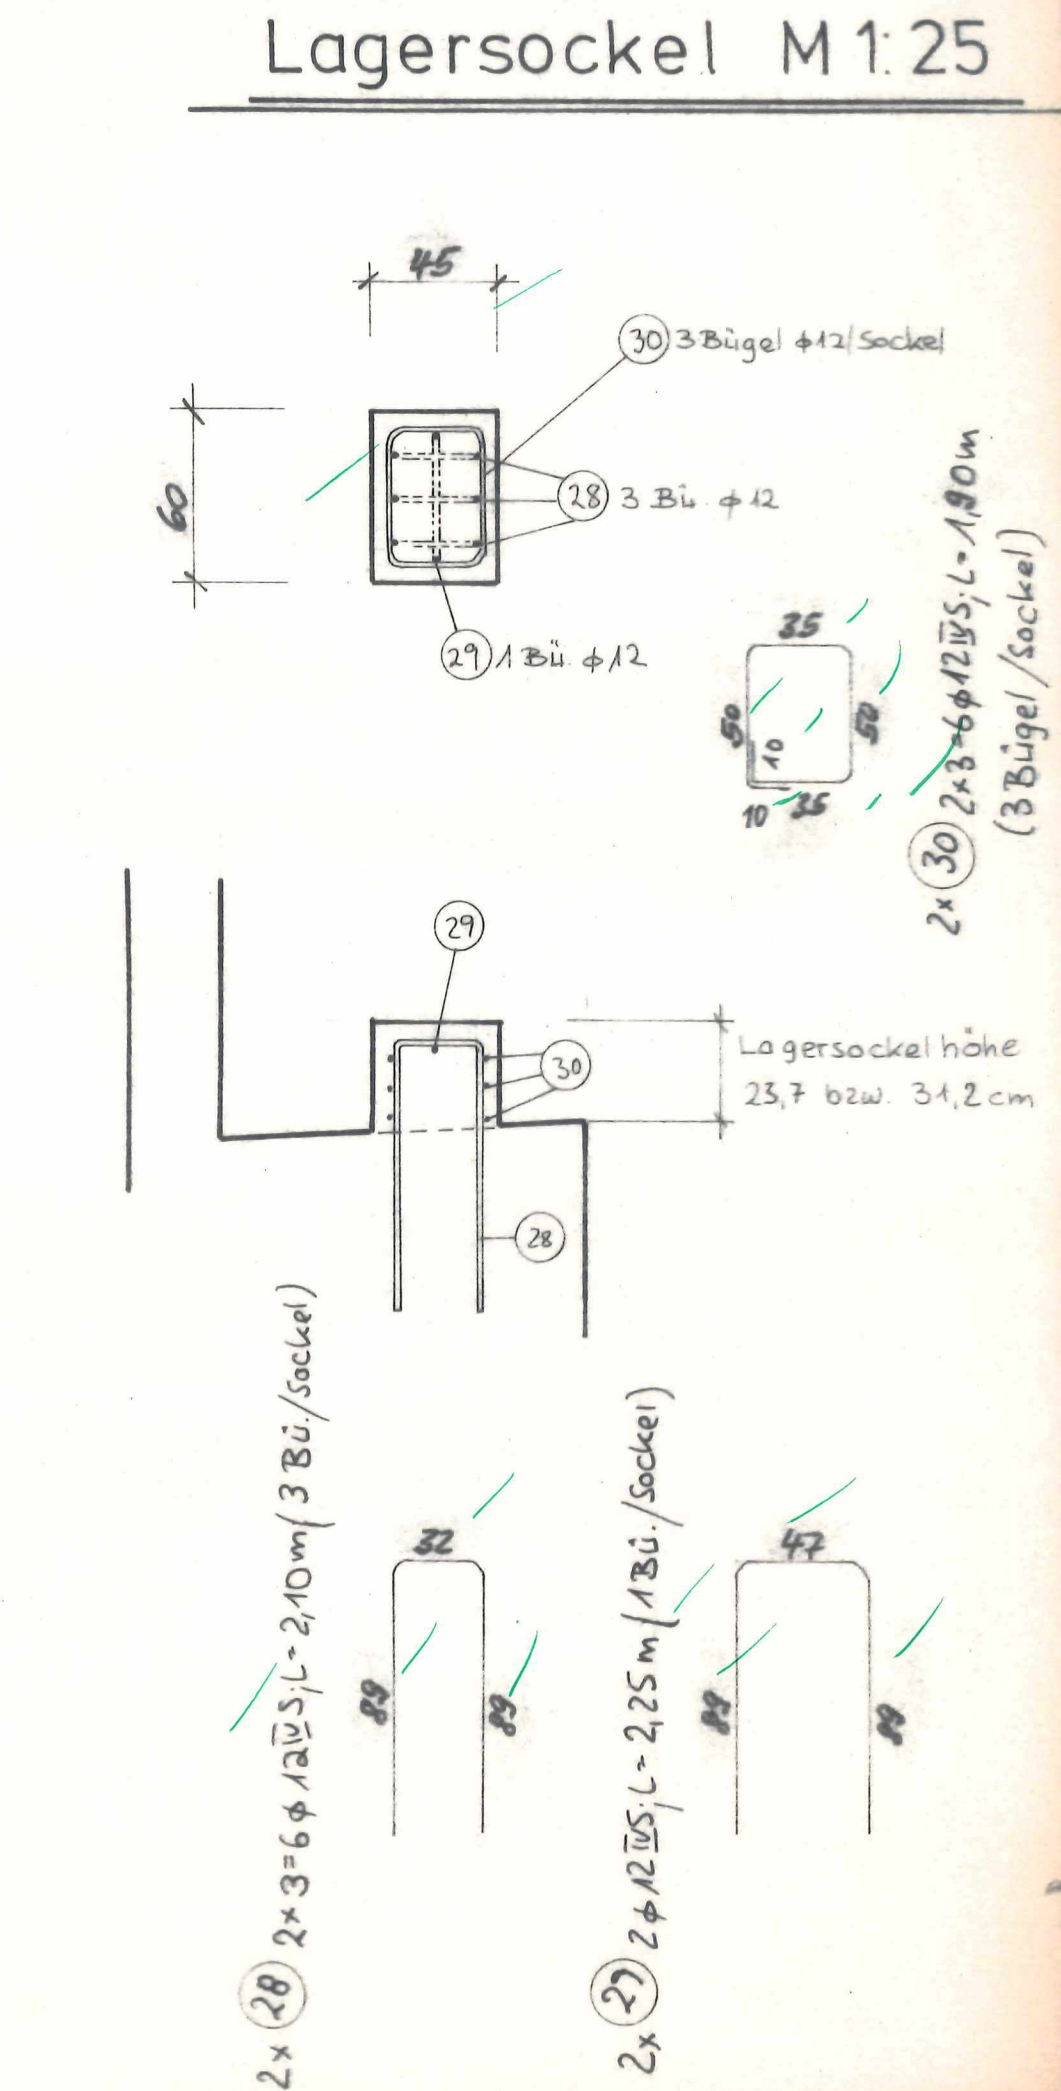 Lagersockel M 1:25
45
30 3 Bügel ϕ12/Sockel
60
28 3 Bü. ϕ12
29 1 Bü. ϕ12
35
50
10
50
10 35
2x 30 2x3=6ϕ12IVS; L=1,90m
(3 Bügel/Sockel)
29
30
Lagersockelhöhe
23,7 bzw. 31,2 cm
28
2x 28 2x3=6ϕ12IVS; L=2,10m (3 Bü./Sockel)
32
89
89
2x 29 2ϕ12IVS; L=2,25m (1 Bü./Sockel)
47
89
89